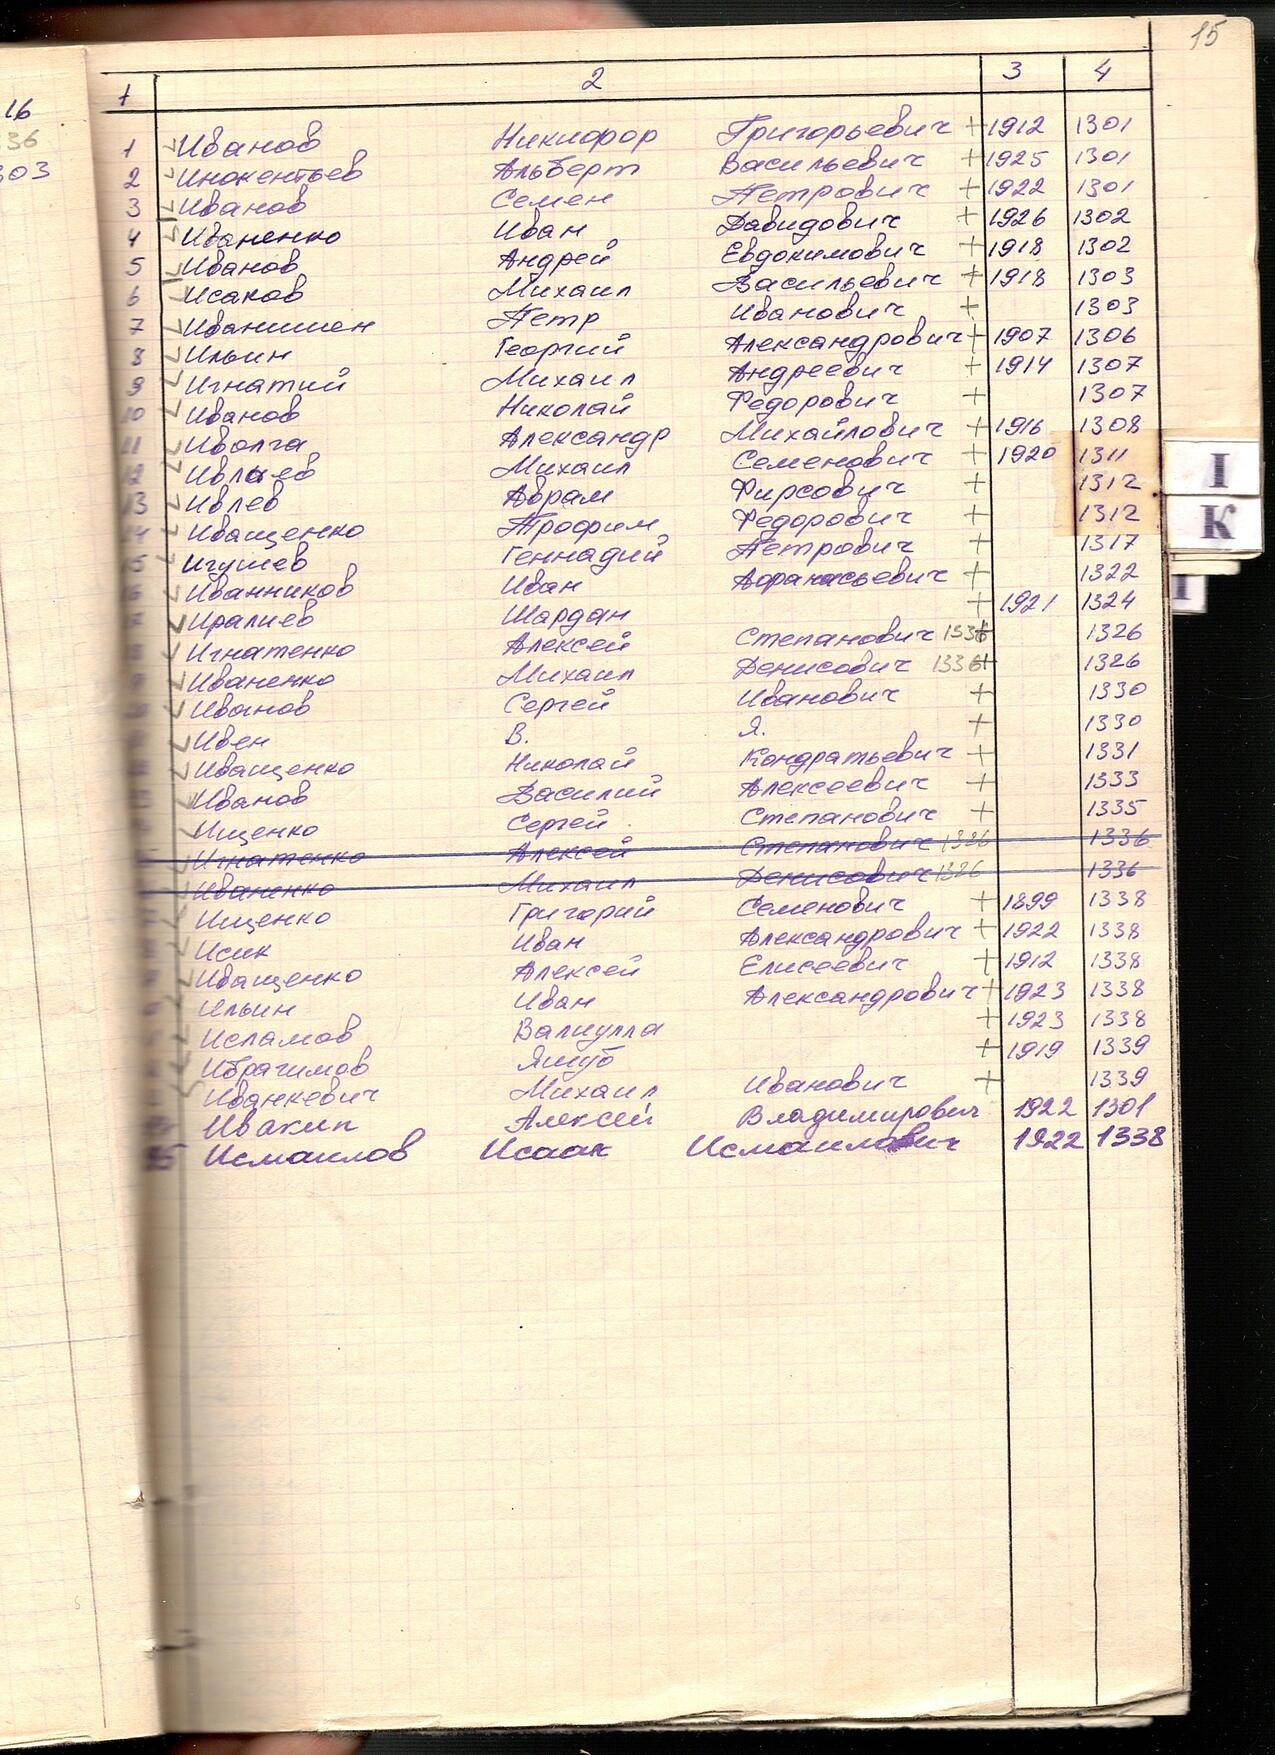 15
1 2 3 4
16
36
303
1 Иванов Никифор Григорьевич + 1912 1301
2 Инокентьев Альберт Васильевич + 1925 1301
3 Иванов Семен Петрович + 1922 1301
4 Иваненко Иван Давидович + 1926 1302
5 Иванов Андрей Евдокимович + 1918 1302
6 Исаков Михаил Васильевич + 1918 1303
7 Иванишен Петр Иванович + 1303
8 Ильин Георгий Александрович + 1907 1306
9 Игнатий Михаил Андреевич + 1914 1307
10 Иванов Николай Федорович + 1307
11 Иволга Александр Михайлович + 1916 1308
12 Ивлиев Михаил Семенович + 1920 1311
13 Ивлев Абрам Фирсович + 1312
14 Иващенко Трофим Федорович + 1312
15 Игушев Геннадий Петрович + 1317
6 Иванников Иван Афанасьевич + 1322
Иралиев Шардан + 1921 1324
8 Игнатенко Алексей Степанович 1336 + 1326
9 Иваненко Михаил Денисович 1336 + 1326
Иванов Сергей Иванович + 1330
Ивен В. Я. + 1330
Иващенко Николай Кондратьевич + 1331
Иванов Василий Алексеевич + 1333
Ищенко Сергей Степанович + 1335
Игнатенко Алексей Степанович 1326 1336
Иваненко Михаил Денисович 1326 1336
Ищенко Григорий Семенович + 1899 1338
Исик Иван Александрович + 1922 1338
Иващенко Алексей Елисеевич + 1912 1338
Ильин Иван Александрович + 1923 1338
Исламов Валиулла + 1923 1338
Ибрагимов Якуб + 1919 1339
Иванкевич Михаил Иванович + 1339
Ивакин Алексей Владимирович 1922 1301
35 Исмаилов Исаак Исмаилович 1922 1338
I
К